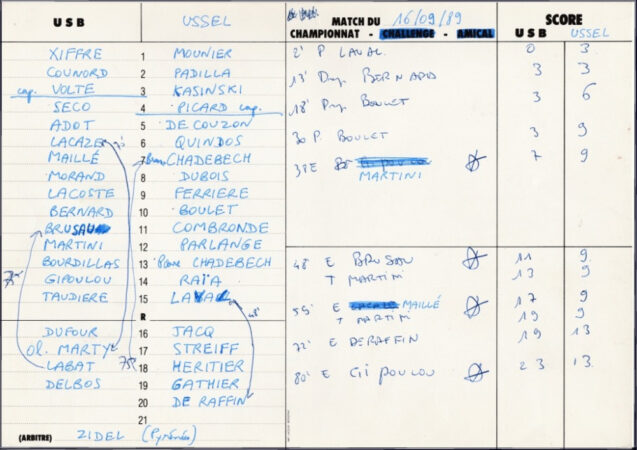 U S B USSEL
XIFFRE 1 MOUNIER
COUNORD 2 PADILLA
cap. VOLTE 3 KASINSKI
SECO 4 PICARD cap.
ADOT 5 DE COUZON
LACAZE 6 QUINDOS
MAILLÉ 7 CHADEBECH
MORAND 8 DUBOIS
LACOSTE 9 FERRIERE
BERNARD 10 BOULET
BRUSAU 11 COMBRONDE
MARTINI 12 PARLANGE
BOURDILLAS 13 Pierre CHADEBECH
GIPOULOU 14 RAÏA
TAUDIERE 15 LAVAL
R
DUFOUR 16 JACQ
Ol. MARTY 17 STREIFF
LABAT 18 HERITIER
DELBOS 19 GATHIER
20 DE RAFFIN
21
(ARBITRE) ZIDEL (Pyrénées)
MATCH DU 16/09/89
CHAMPIONNAT - CHALLENGE - AMICAL
SCORE
U S B USSEL
2' P LAVAL 0 3
13' Drop BERNARD 3 3
18' Drop BOULET 3 6
30 P BOULET 3 9
38 E 7 9
MARTINI
48' E BRUSAU 11 9
T MARTINI 13 9
55' E MAILLÉ 17 9
T MARTINI 19 9
72' E DERAFFIN 19 13
80' E GiPOULOU 23 13